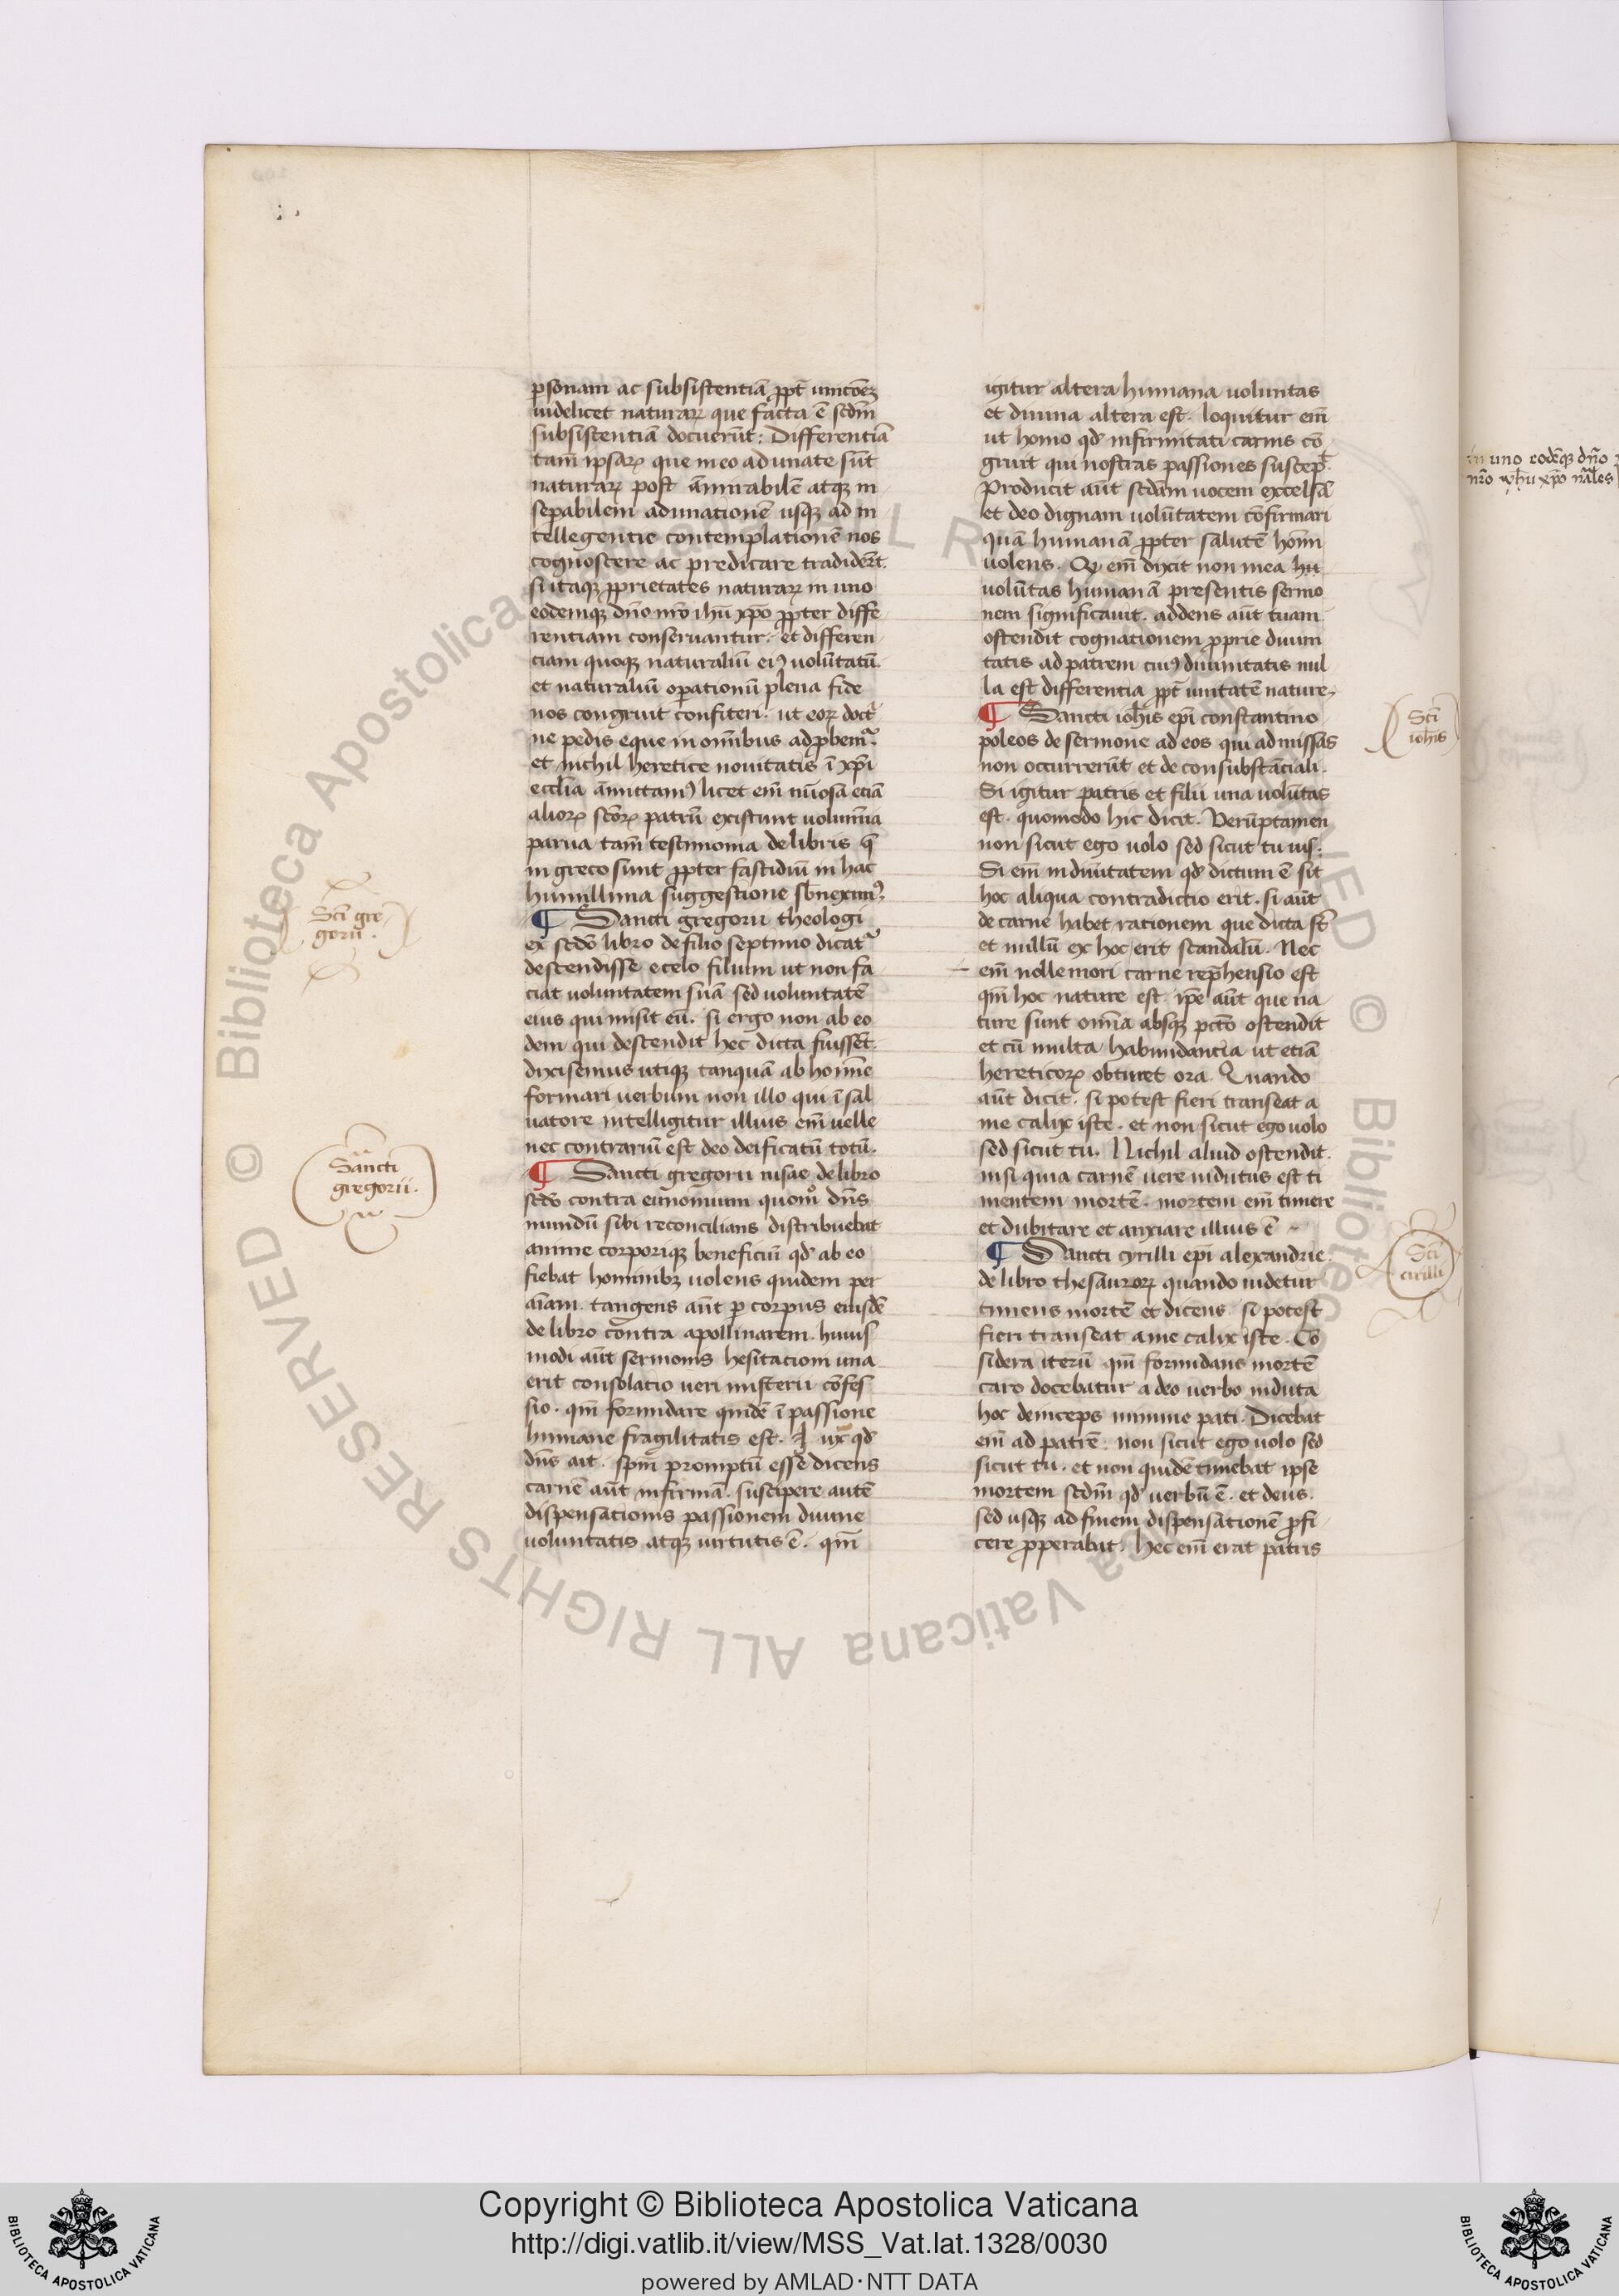 psonam ac subsistentiā ꝓpt̄ unicōeꝫ
uidelicet naturaꝝ que facta ē scd̄m
subsistentiā docuerūt: Differentiā
tam̄ ipsaꝝ que in eo adunate sūt
naturaꝝ post āmirabilē atqꝫ in
sepabilem adunationē usqꝫ ad in
tellegentie contemplationē nos
cognoscere ac predicare tradider̄t.
si itaqꝫ ꝓprietates naturaꝝ in uno
eodemqꝫ dn̄o nr̄o ihū xp̄o ꝓpter diffe
rentiam conseruantur. et differen
ciam quoqꝫ naturaliū eiꝰ volūtatū.
et naturaliū operationū plena fide
nos congruit confiteri. ut eoꝝ doctͥ
ne pedis eque in omībus adꝓbemͬ.
et nichil heretice nouitatis ī xp̄i
eccl̄ia āmittamꝰ licet em̄ nūosā etiā
alioꝝ scōꝝ patrū existunt uolumīa
parua tam̄ testimonia de libris q̄
in greco sunt ꝓpter fastidiū in hac
humillima suggestione sb̄neximꝰ
¶ Sancti gregorii theologi
ex scdō libro de filio septimo dicatͬ
descendisse e celo filium ut non fa
ciat voluntatem suā sed voluntatē
eius qui misit eū. si ergo non ab eo
dem qui descendit hec dicta fuissēt.
dixisemus utiqꝫ tanquā ab homīe
formari uerbum non illo qui ī sal
uatore intelligitur illius em̄ uelle
nec contrariū est deo deificatū totū.
¶ Sancti gregorii nisae de libro
scdō contra eunomium quomͦ dn̄s
mundū sibi reconcilians distribuebat
anime corporiqꝫ beneficiū qd̛ ab eo
fiebat hominibꝫ uolens quidem per
aīam. tangens aūt p corpus eiusdē
de libro contra apollinarem. huius
modi aūt sermonis hesitacioni una
erit consolatio ueri misterii cōfes
sio. qm̄ formidare quidē ī passione
humane fragilitatis est.
dn̄s ait. spm̄ promptū esse dicens
carnē aūt infirmā. suscipere autē
dispensationis passionem diuine
uoluntatis atqꝫ uirtutis ē. qm̄
igitur altera humana uoluntas
et diuina altera est. loquitur em̄
ut homo qd̛ infirmitati carnis cō
gruit qui nostras passiones suscepͭ.
Producit aūt scd̄am uocem excelsā
et deo dignam uolūtatem cōfirmari
quā humanā ꝓpter salutē homī
uolens. Qͥ em̄ dixit non mea hū
uolūtas humanā presentis sermo
nem significauit. addens aūt tuam
ostendit cognationem proprie diuini
tatis ad patrem cuiꝰ diuinitatis nul
la est differentia ꝓpt̄ unitatē nature
¶ Sancti ioh̄is ep̄i constantino
poleos de sermone ad eos qui ad missas
non occurrerūt et de consubstāciali.
Si igitur patris et filii una uolūtas
est. quomodo hic dicit. Verūptamen
non sicut ego uolo sed sicut tu uis.
Si em̄ in diuītatem qd̛ dictum ē sit
hoc aliqua contradictio erit. si aūt
de carne habet rationem que dicta st̄
et nullū ex hoc erit scandalū. Nec
em̄ nolle mori carne rep̄hensio est
qm̄ hoc nature est. ip̄e aūt que na
ture sunt omīa absqꝫ pctō ostendit
et cū multa habundancia ut etiā
hereticoꝝ obturet ora. Quando
aūt dicit. si potest fieri transeat a
me calix iste. et non sicut ego uolo
sed sicut tu. Nichil aliud ostendit.
nisi quia carnē uere indutus est ti
mentem mortē. mortem em̄ timere
et dubitare et anxiare illius ē
¶ Sancti cyrilli ep̄i alexandrie
de libro thesauroꝝ quando uidetur
timens mortē et dicens si potest
fieri transeat a me calix iste. Cō
sidera iterū qm̄ formidans mortē
caro docebatur a deo uerbo induta
hoc deinceps minime pati. Dicebat
em̄ ad patrē. non sicut ego uolo sed
sicut tu. et non quidē timebat ipse
mortem scd̄m qd̛ uerbū ē. et deus.
sed usqꝫ ad finem dispensationē ꝓfi
cere ꝓperabat. hec em̄ erat patris
Scī gre
gorii.
Sancti
gregorii.
Scī
ioh̄is
Scī
cirilli
in uno eodēqꝫ dn̄o
nr̄o ih̄u xp̄o nāles
© Biblioteca Apostolica Vaticana ALL RIGHTS RESERVED
Copyright © Biblioteca Apostolica Vaticana
http://digi.vatlib.it/view/MSS_Vat.lat.1328/0030
powered by AMLAD·NTT DATA
BIBLIOTECA APOSTOLICA VATICANA
BIBLIOTECA APOSTOLICA VATICANA